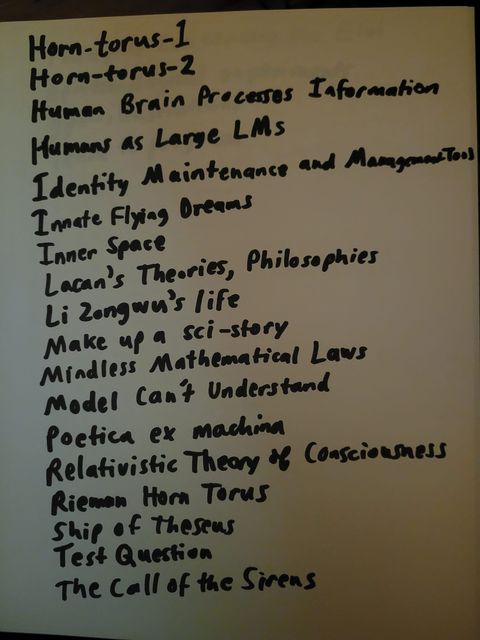 Horn-torus-1
Horn-torus-2
Human Brain Processes Information
Humans as Large LMs
Identity Maintenance and Management Tools
Innate Flying Dreams
Inner Space
Lacan's Theories, Philosophies
Li Zongwu's life
Make up a sci-story
Mindless Mathematical Laws
Model Can't Understand
Poetica ex machina
Relativistic Theory of Consciousness
Rieman Horn Torus
Ship of Theseus
Test Question
The Call of the Sirens